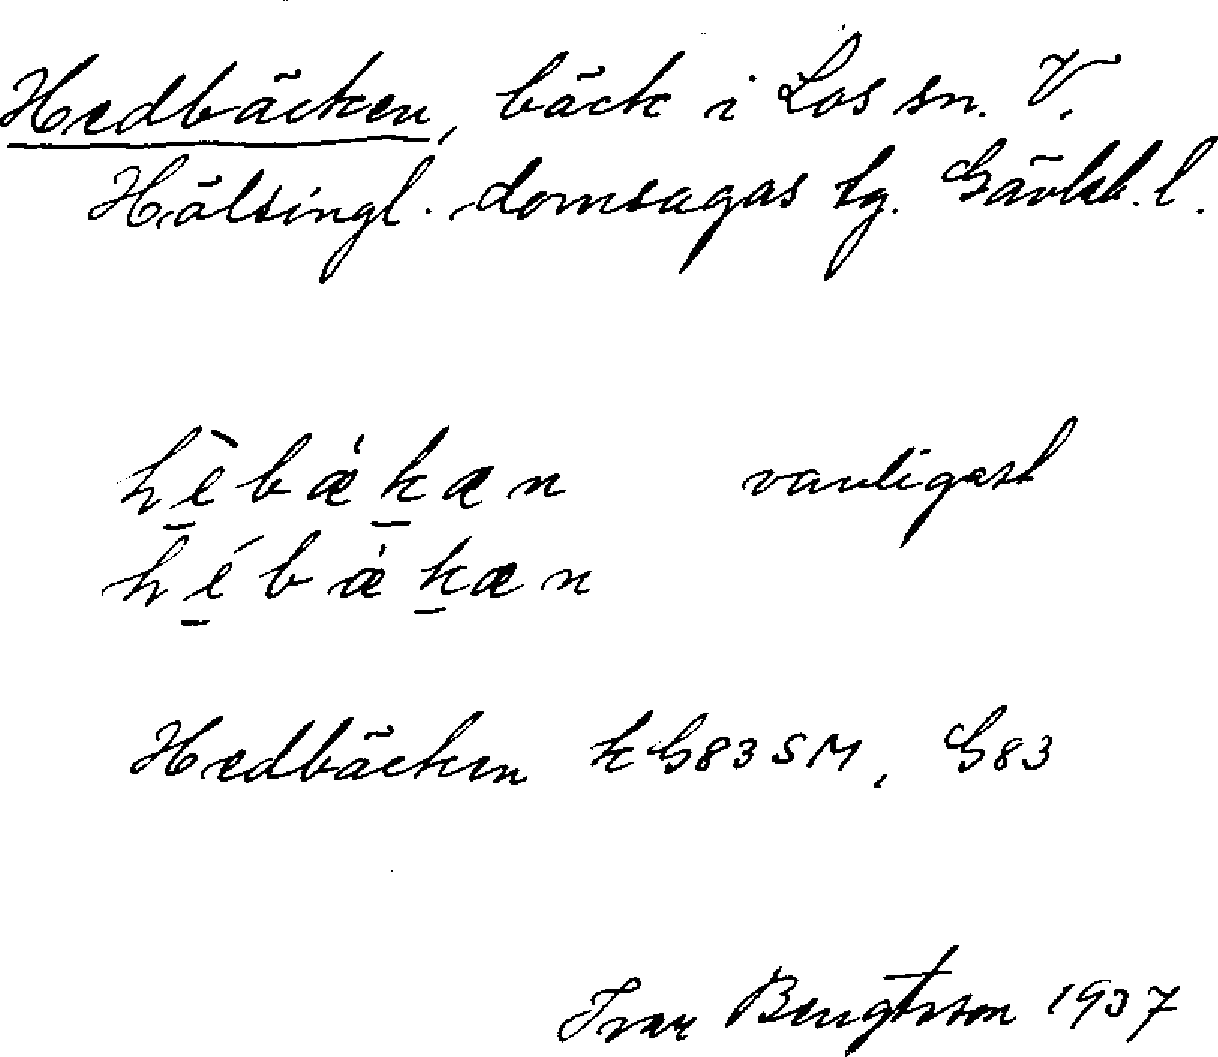 Hedbäcken, bäck i Los sn. V.
Hälsingl. domsagas tg. Gävleb. l.
hè̱bǽḵæn vanligast
hé̱bǽḵæn
Hedbäcken kG83SM, G83
Ivar Bengtsson 1937